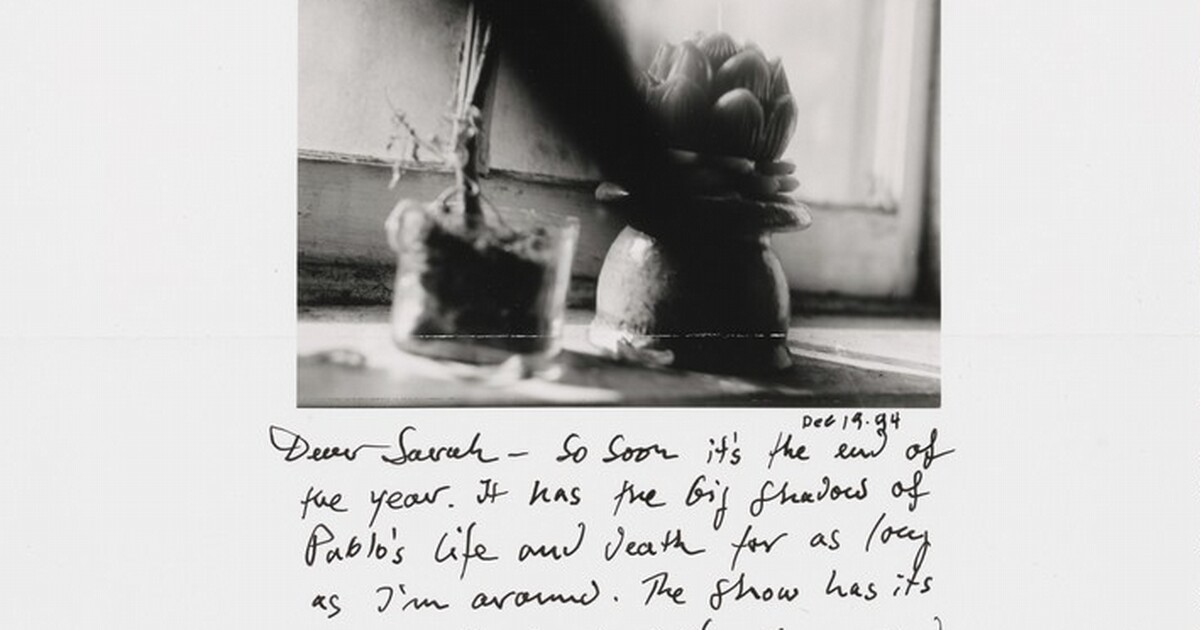 Dec 19. 94
Dear Sarah – So soon it's the end of
the year. It has the big shadows of
Pablo's life and death for as long
as I'm around. The show has its